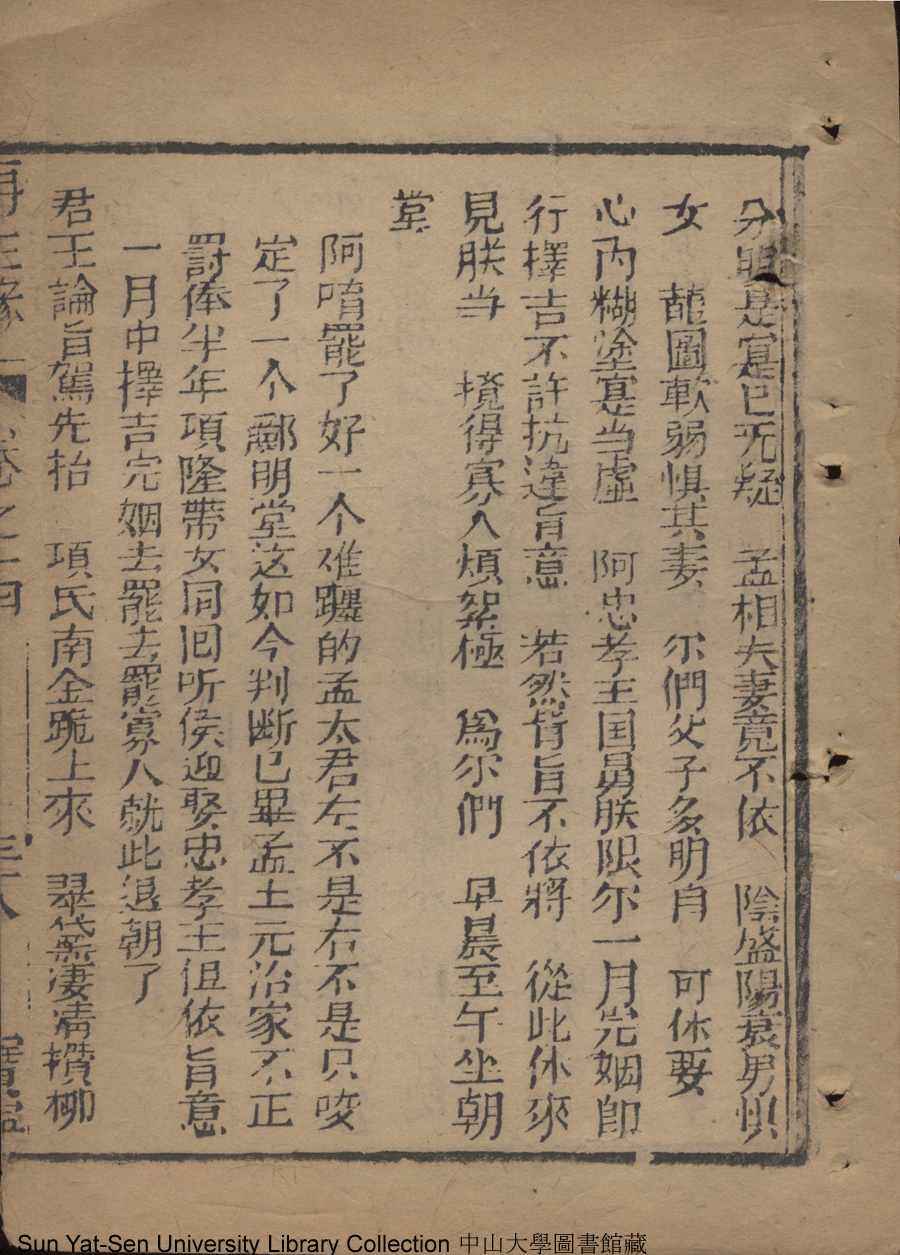 分明是寔已无疑　孟相夫妻竟不依　陰盛陽衰男惧
女　龍圖軟弱惧其妻　尔們父子多明白　可休要
心内糊塗寔当虛　阿忠孝王国舅朕限尔一月完姻即
行擇吉不許抗違旨意　若然背旨不依將　從此休來
見朕当　攪得寡人煩絮極　為尔們　早晨至午坐朝
堂
阿唷罷了好一个难躧的孟太君左不是右不是只咬
定了一个酈明堂这如今判断已畢孟士元治家不正
罸俸半年項隆帶女同囬听侯迎娶忠孝王但依旨意
一月中擇吉完姻去罷去罷寡人就此退朝了
君王諭旨駕先抬　項氏南金跪上來　翠黛凄凄攢柳
再生緣　卷之十四